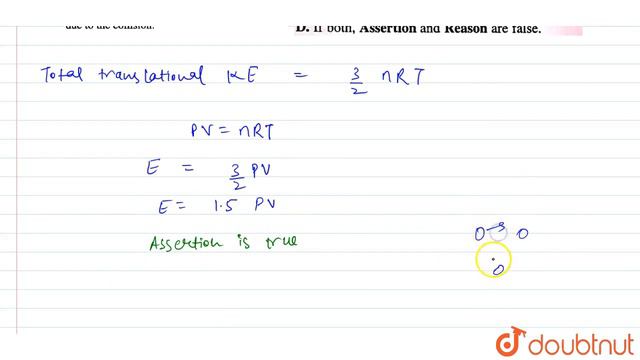 due to the collision.
D. If both, Assertion and Reason are false.
Total translational KE = 3/2 nRT
PV = nRT
E = 3/2 PV
E = 1.5 PV
Assertion is true
doubtnut